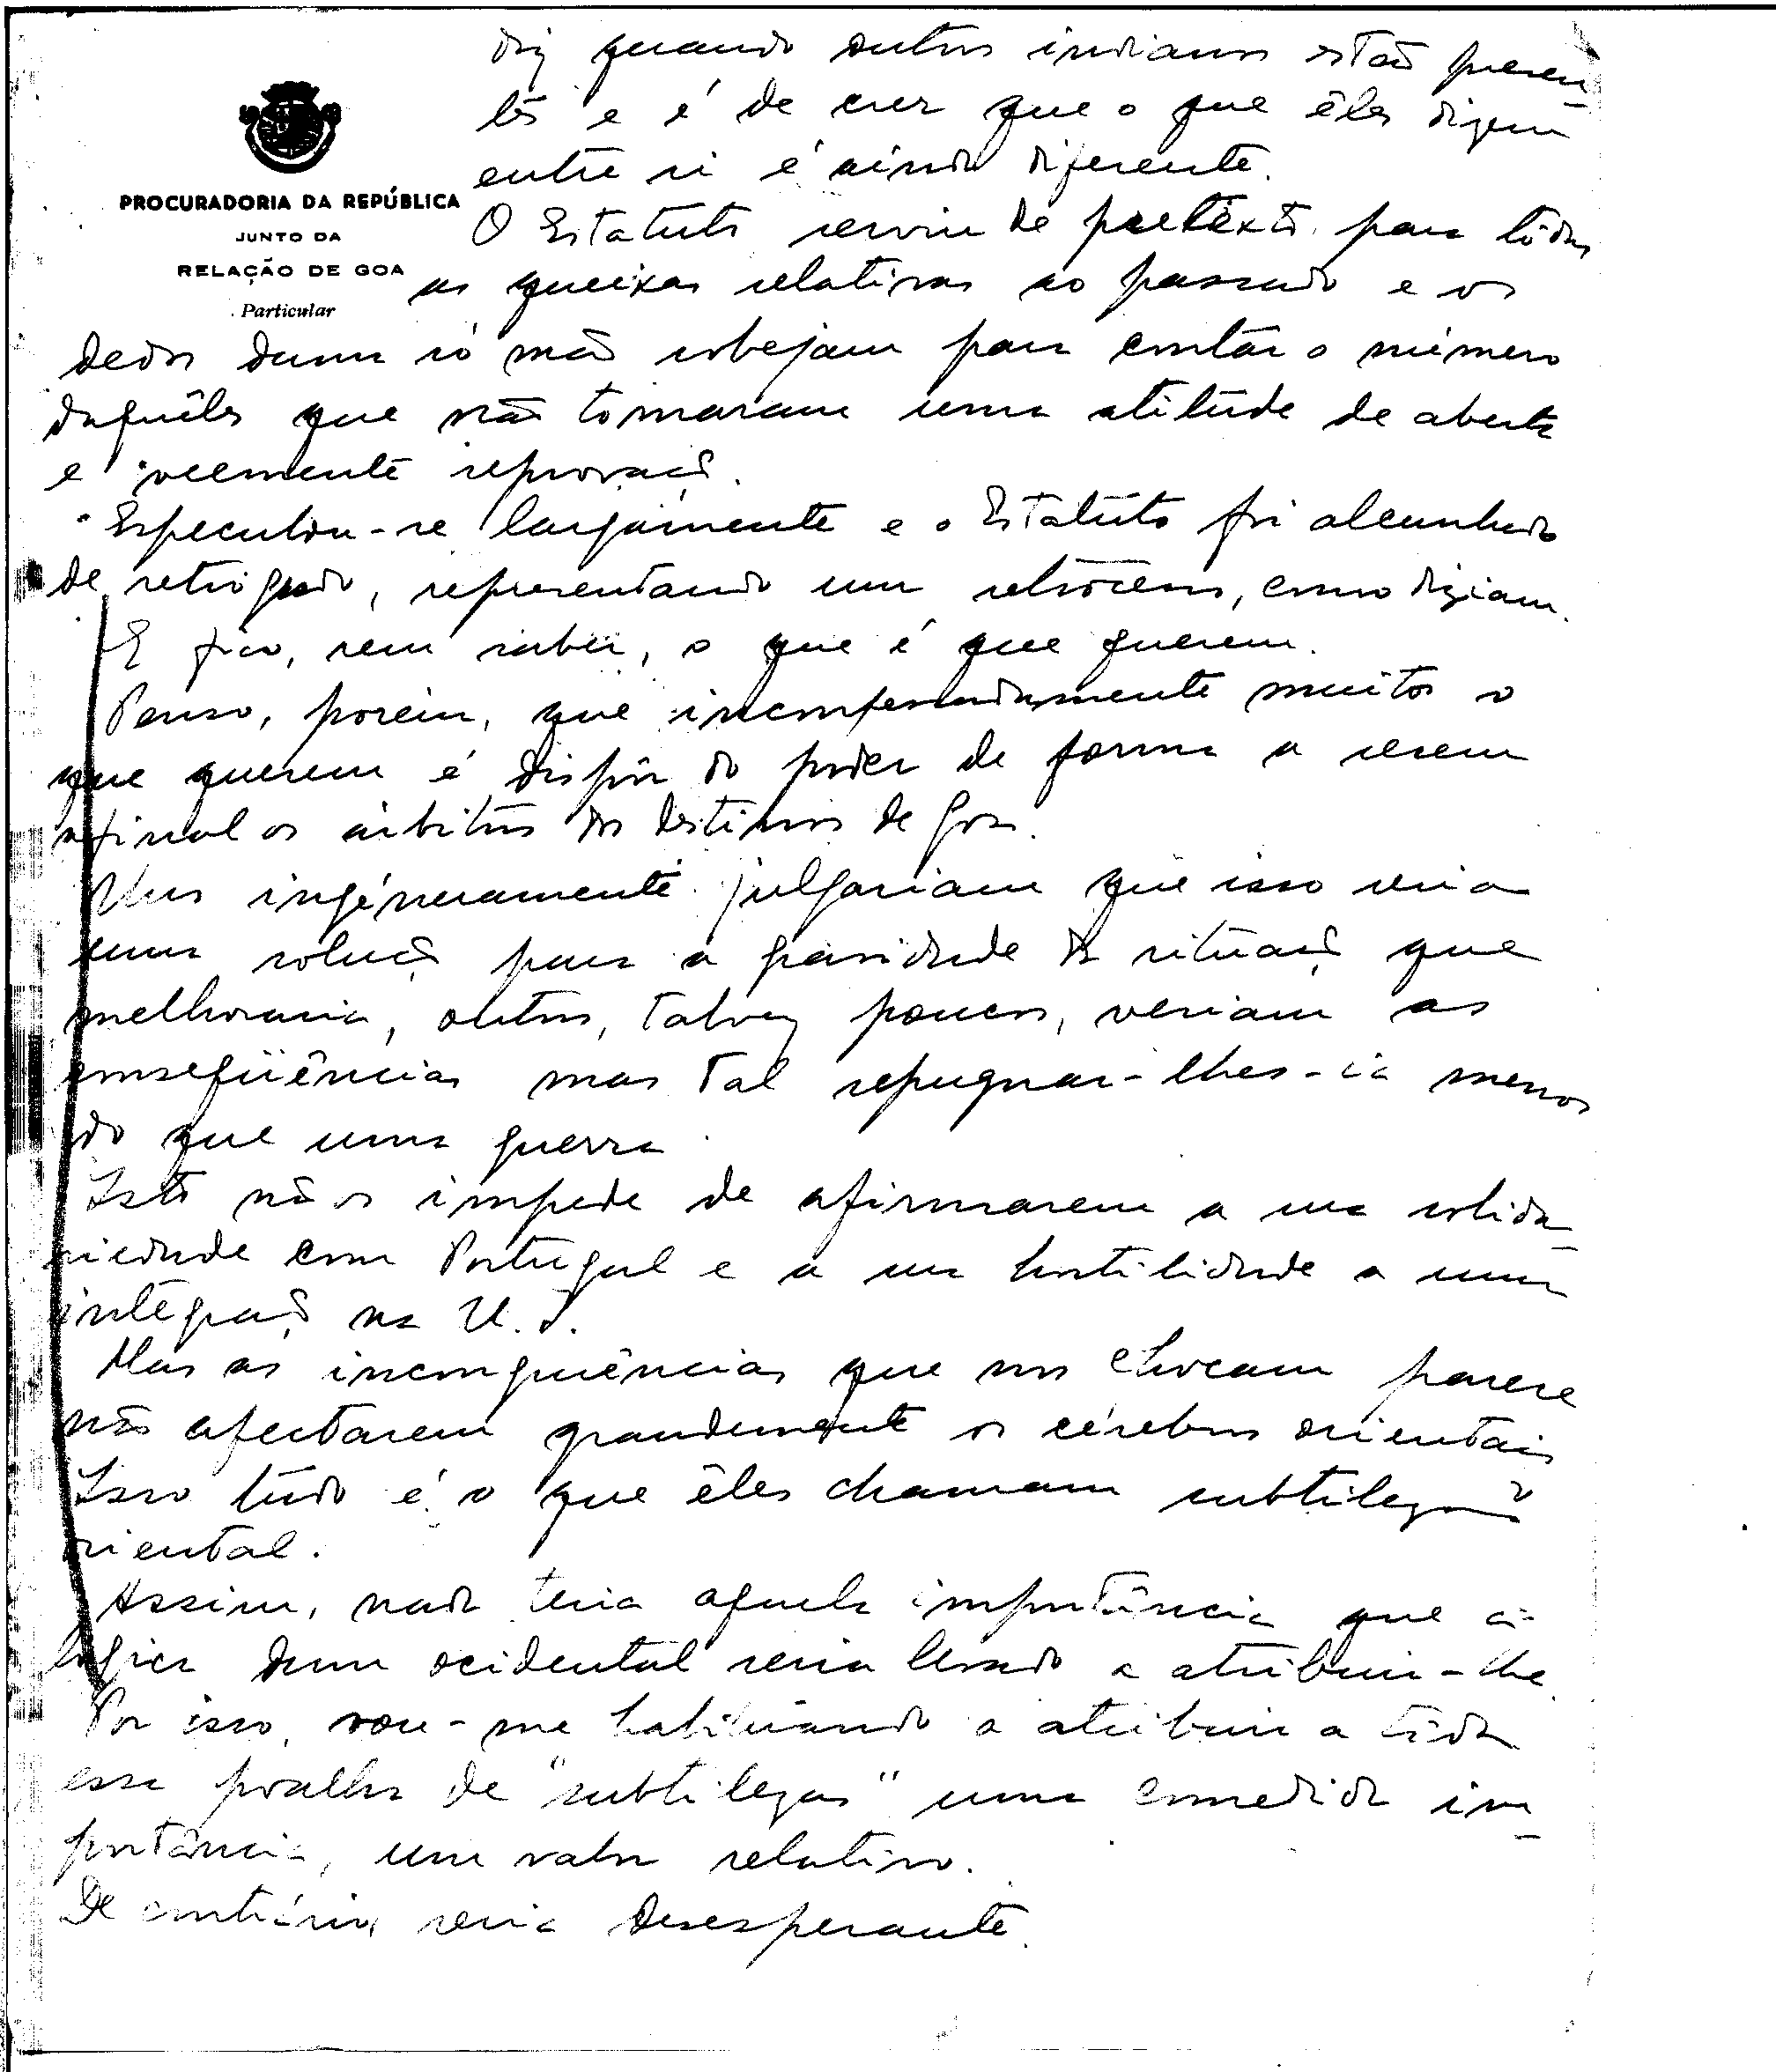 diz quando outros indianos estão presen-
tes e é de crer que o que êles dizem
entre si é ainda diferente.
PROCURADORIA DA REPÚBLICA
JUNTO DA
RELAÇÃO DE GOA
Particular
O Estatuto serviu de pretexto para tôdas
as queixas relativas ao passado e os
dedos duma só mão sobejam para contar o número
daquêles que não tomaram uma atitude de aberta
e veemente reprovação.
Especulou-se largamente e o Estatuto foi alcunhado
de retrógrado, representando um retrocesso, como diziam.
E fico, sem saber, o que é que querem.
Penso, porém, que inconfessadamente muitos o
que querem é dispôr do poder de forma a serem
afinal os árbitros dos destinos de Goa.
Uns ingénuamente julgariam que isso seria
uma solução para a gravidade da situação que
melhoraria, outros, talvez poucos, veriam as
conseqüências mas tal repugnar-lhes-ia menos
do que uma guerra.
Isto não os impede de afirmarem a sua solida-
riedade com Portugal e a sua hostilidade a uma
integração na U. I.
Mas as incongruências que nos chocam parece
não afectarem grandemente os cérebros orientais
Isso tudo é o que êles chamam subtileza
oriental.
Assim, nada teria aquela importância que a
lógica dum ocidental seria levado a atribuir-lhe.
Por isso, vou-me habituando a atribuir a tôda
essa de "subtilezas" uma comedida im-
portância, um valor relativo.
De contrário, seria desesperante.